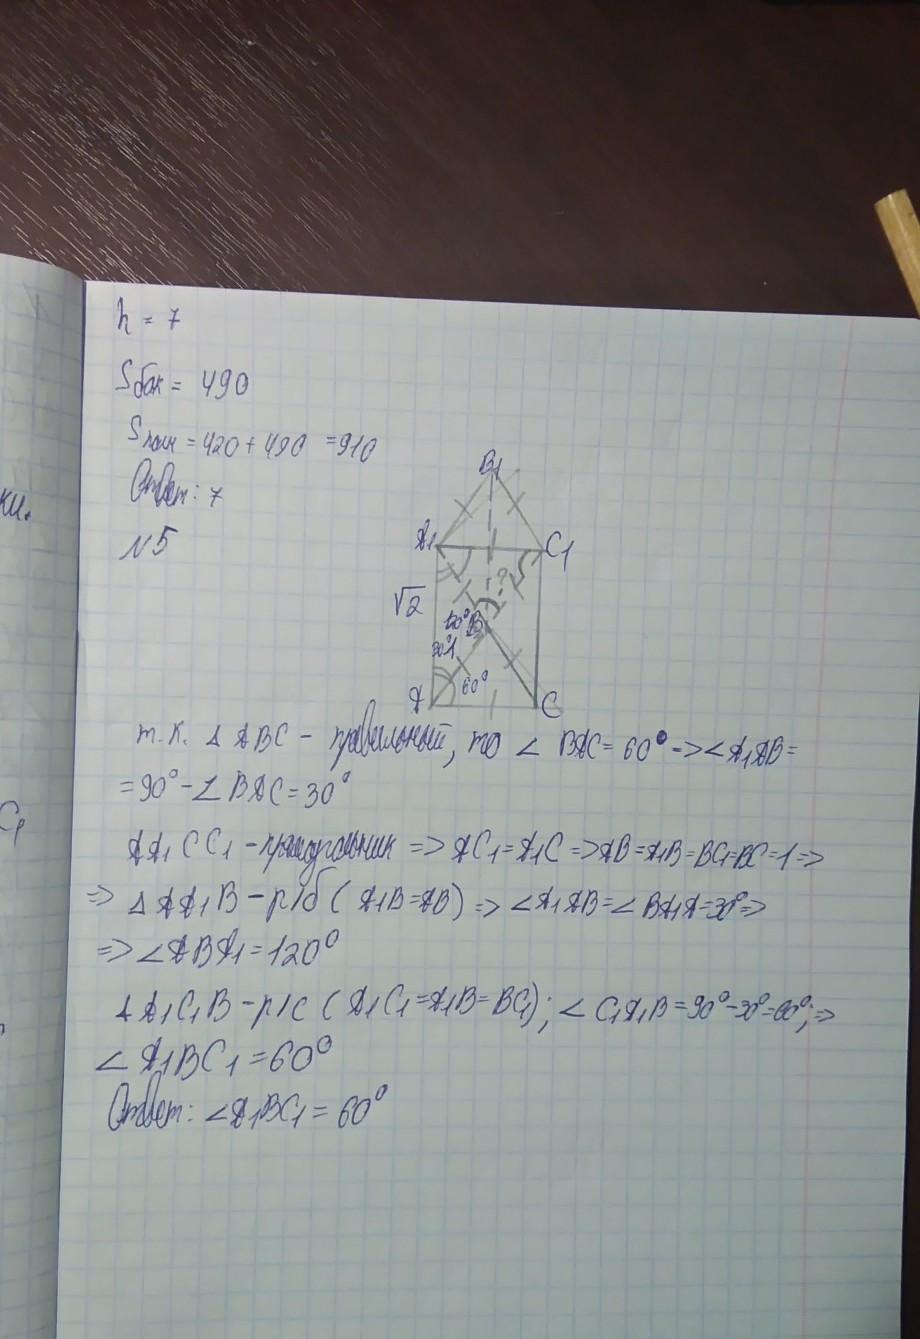 h = 7
Sбок = 490
Sполн = 420 + 490 = 910
Ответ: 7
N5
B1
A1
C1
√2
?
120°
B
30°
60°
A
C
т.к. △ABC - правильный, то ∠ BAC = 60° -> ∠A1AB =
= 90° - ∠BAC = 30°
AA1CC1 - прямоугольник => AC1 = A1C => AB = A1B = BC1 = BC = 1 =>
=> △AA1B - р/б (A1B = AB) => ∠A1AB = ∠BA1A = 30° =>
=> ∠ABA1 = 120°
△A1C1B - р/с (A1C1 = A1B = BC1); ∠C1A1B = 90° - 30° = 60°; =>
∠A1BC1 = 60°
Ответ: ∠A1BC1 = 60°
ки.